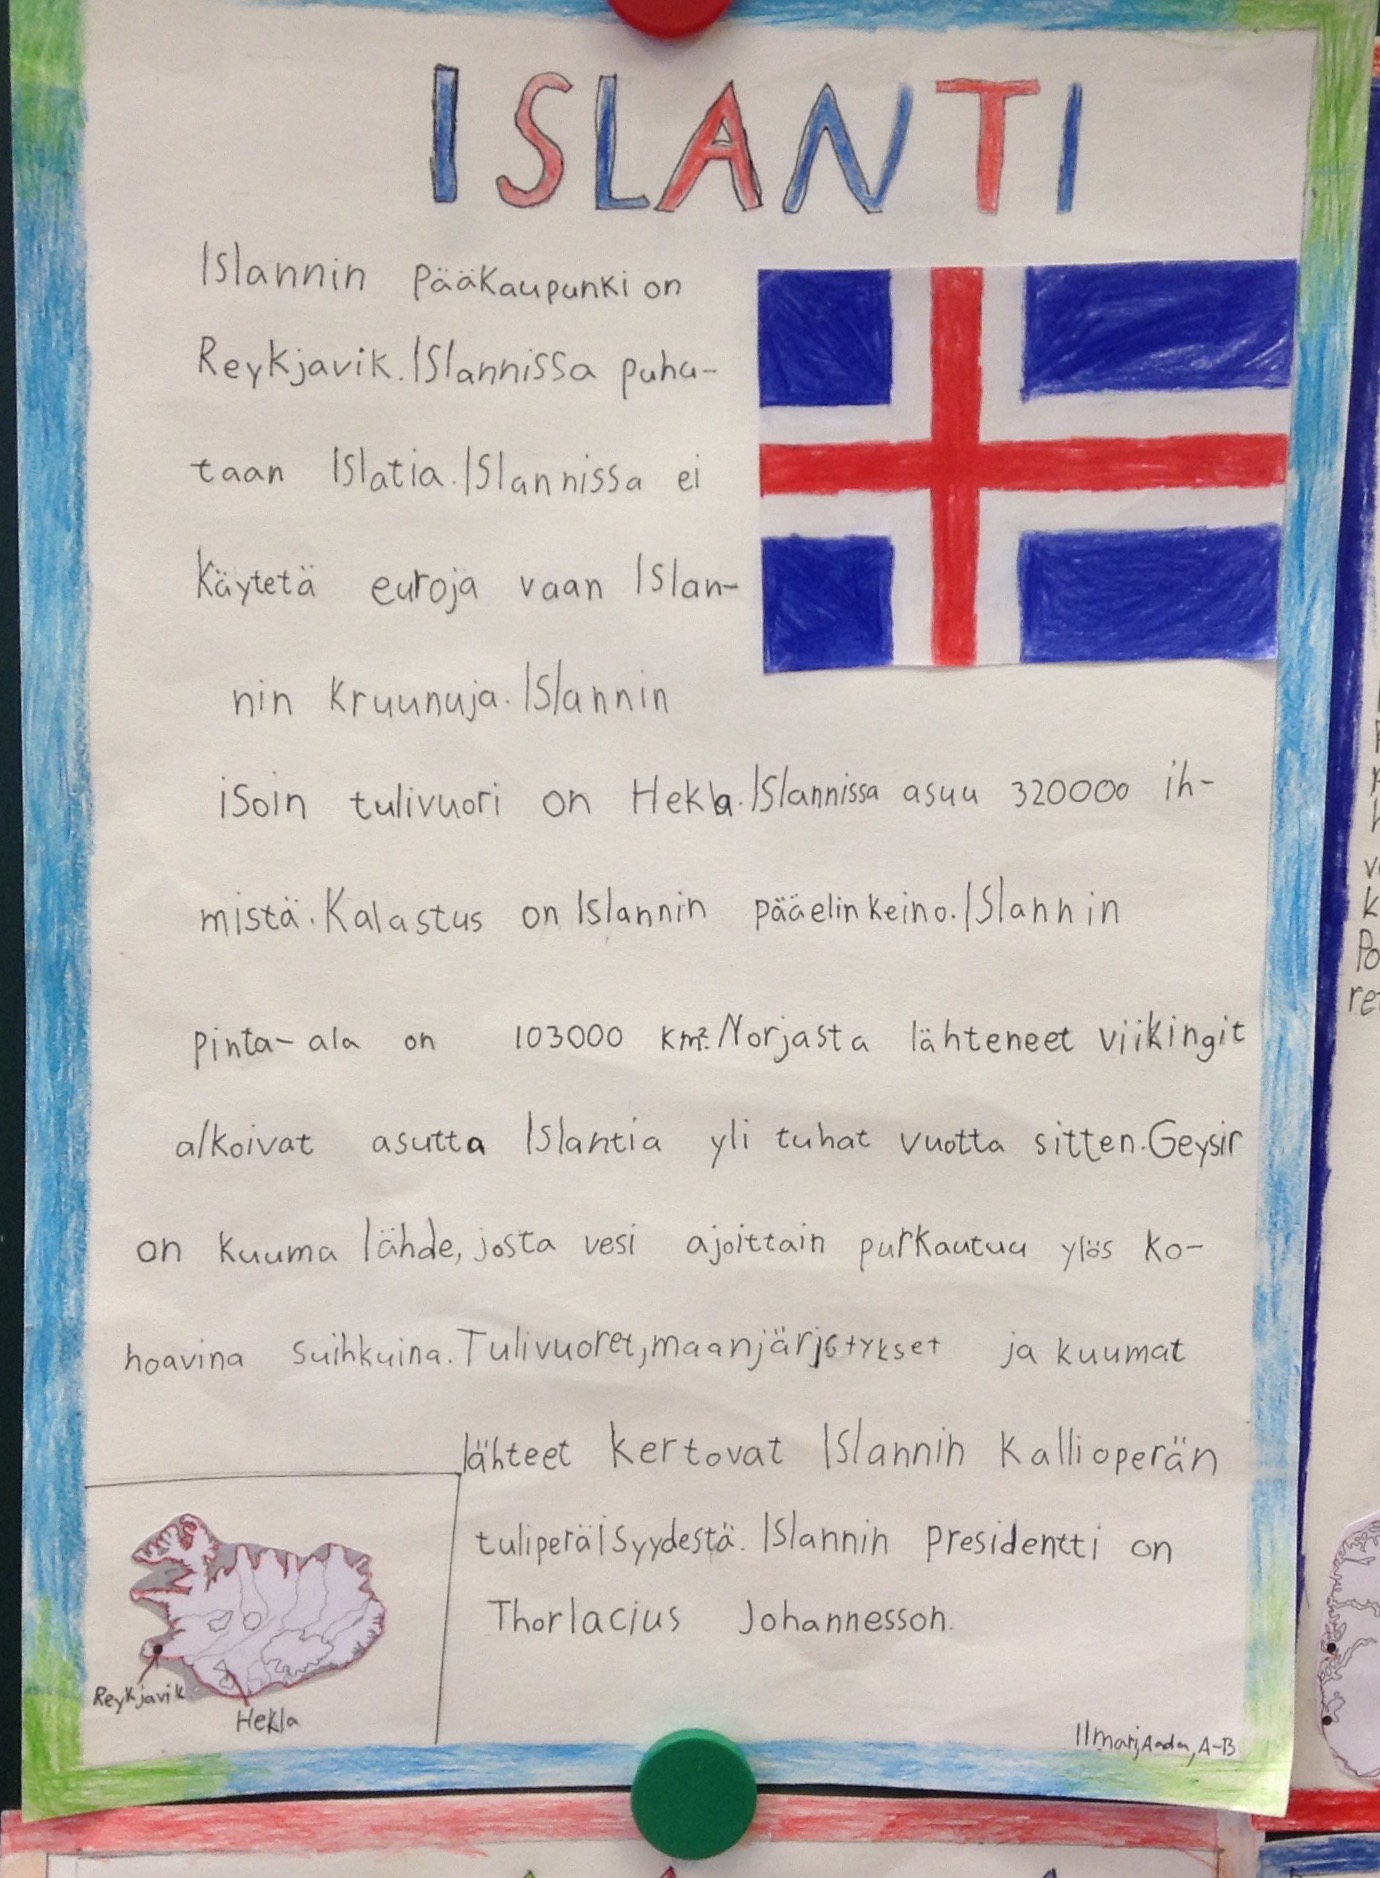 ISLANTI
Islannin pääkaupunki on
Reykjavik. Islannissa puhu-
taan Islatia. Islannissa ei
käytetä euroja vaan Islan-
nin kruunuja. Islannin
isoin tulivuori on Hekla. Islannissa asuu 320000 ih-
mistä. Kalastus on Islannin pääelinkeino. Islannin
pinta-ala on 103000 km². Norjasta lähteneet viikingit
alkoivat asutta Islantia yli tuhat vuotta sitten. Geysir
on kuuma lähde, josta vesi ajoittain purkautuu ylös ko-
hoavina suihkuina. Tulivuoret, maanjäristykset ja kuumat
lähteet kertovat Islannin kallioperän
tuliperäisyydestä. Islannin presidentti on
Thorlacius Johannesson.
Reykjavik
Hekla
Ilmari, Aada, A-B